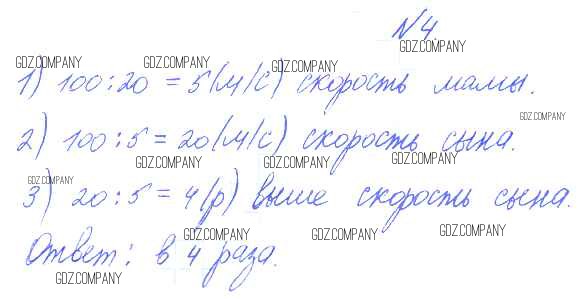 №4.
GDZ.COMPANY
GDZ.COMPANY GDZ.COMPANY GDZ.COMPANY
1) 100:20 = 5(м/с) скорость мамы.
GDZ.COMPANY
2) 100:5 = 20(м/с) скорость сына.
GDZ.COMPANY GDZ.COMPANY GDZ.COMPANY
GDZ.COMPANY
3) 20:5 = 4(р) выше скорость сына.
GDZ.COMPANY GDZ.COMPANY GDZ.COMPANY
Ответ: в 4 раза.
GDZ.COMPANY GDZ.COMPANY